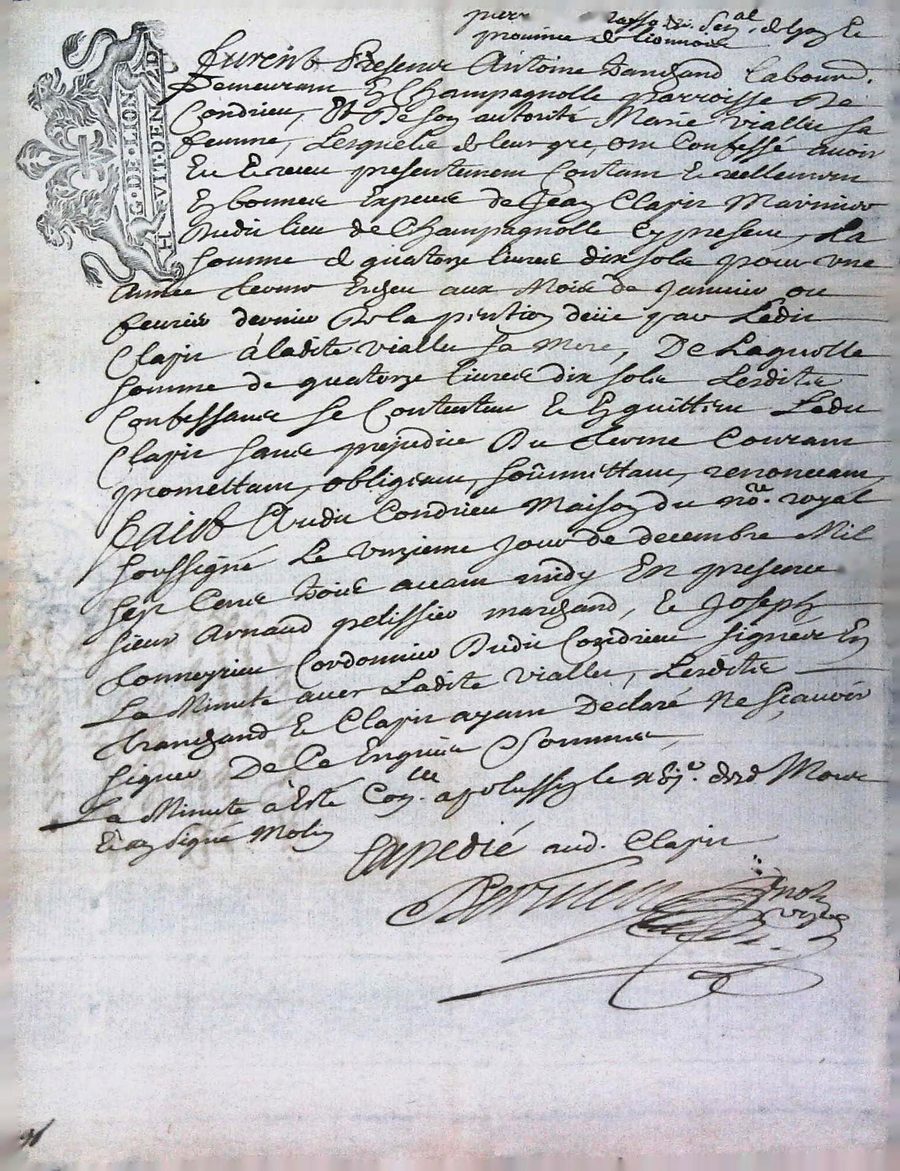 G. DE. LION
H VIT. DEN. D
province de lionnois
Furent Presens Antoine Laboure.
Demeurant En Champagnolle parroisse De
Condrieu, Et De son autorite Marie viallet sa
femme, Lesquels de leur gre, ont Confessé avoir
Eu Et receu presentement Contant Et reellement
En bonnes Especes de Jean Clapir Marinier
Dudit lieu de Champagnolle Cy present, La
somme de quatorze livres dix sols pour une
Année Escheu aux Mois de Janvier ou
fevrier dernier De la pention deüe par Ledit
Clapir à ladite viallet sa Mere, De Laquelle
somme de quatorze livres dix sols Lesdits
Confessants se Contentent Et En quittent Ledit
Clapir sans prejudice Du terme Courant
promettant, obligeant, soûmettant, renonceant,
faict Audit Condrieu Maison du no.re royal
soussigné Le unzieme jour de decembre Mil
sept Cens Trois avant midy En presence
sieur Arnaud pelissier marchand, Et Joseph
Cordonnier Dudit Condrieu signés En
La Minute avec Ladite viallet, Lesdits
Et Clapir ayant Declaré Ne sçavoir
signer De Ce Enquis Et sommés,
La Minute à Esté Con.lée a pelussin le dud. Mois
Et an signé Molin
Expedié aud. Clapir